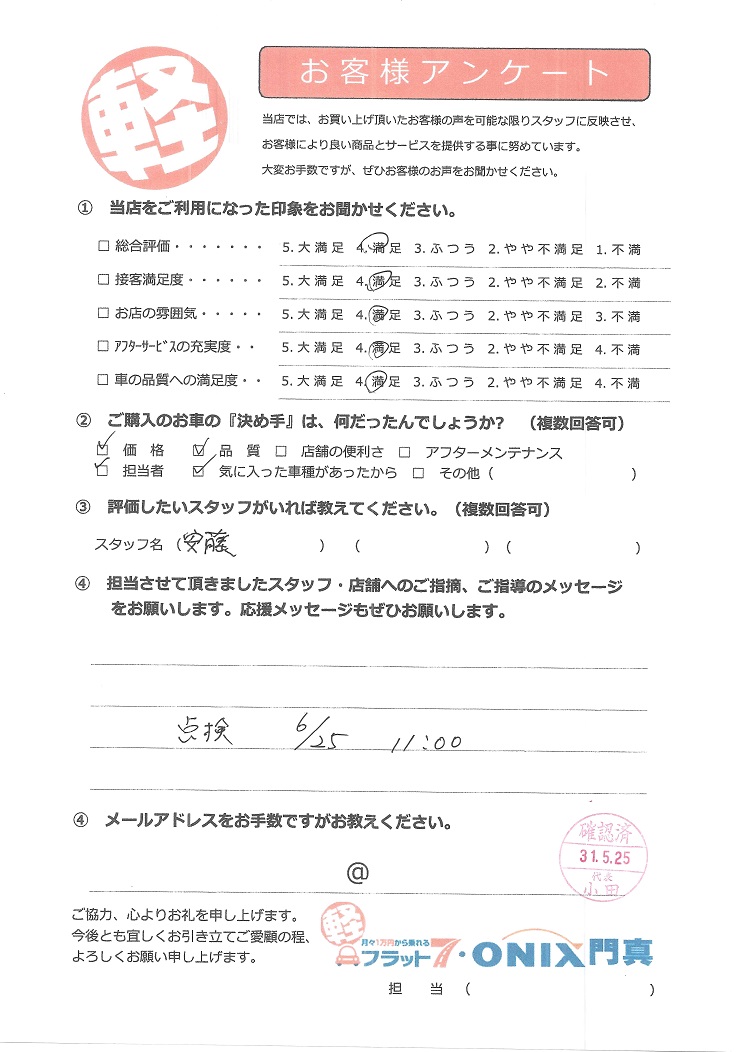 軽
お客様アンケート
当店では、お買い上げ頂いたお客様の声を可能な限りスタッフに反映させ、
お客様により良い商品とサービスを提供する事に努めています。
大変お手数ですが、ぜひお客様のお声をお聞かせください。
① 当店をご利用になった印象をお聞かせください。
□ 総合評価・・・・・・・ 5.大満足 4.満足 3.ふつう 2.やや不満足 1.不満
□ 接客満足度・・・・・・ 5.大満足 4.満足 3.ふつう 2.やや不満足 2.不満
□ お店の雰囲気・・・・・ 5.大満足 4.満足 3.ふつう 2.やや不満足 3.不満
□ ｱﾌﾀｰｻｰﾋﾞｽの充実度・・ 5.大満足 4.満足 3.ふつう 2.やや不満足 4.不満
□ 車の品質への満足度・・ 5.大満足 4.満足 3.ふつう 2.やや不満足 4.不満
② ご購入のお車の『決め手』は、何だったんでしょうか? （複数回答可）
☑ 価 格 ☑ 品 質 □ 店舗の便利さ □ アフターメンテナンス
☑ 担当者 ☑ 気に入った車種があったから □ その他（ ）
③ 評価したいスタッフがいれば教えてください。（複数回答可）
スタッフ名 （安藤 ） （ ） （ ）
④ 担当させて頂きましたスタッフ・店舗へのご指摘、ご指導のメッセージ
をお願いします。応援メッセージもぜひお願いします。
点検 6/25 11:00
④ メールアドレスをお手数ですがお教えください。
@
確認済
31.5.25
代表
小田
ご協力、心よりお礼を申し上げます。
今後とも宜しくお引き立てご愛顧の程、
よろしくお願い申し上げます。
軽
月々1万円から乗れる
フラット7・ONIX門真
担 当 （ ）